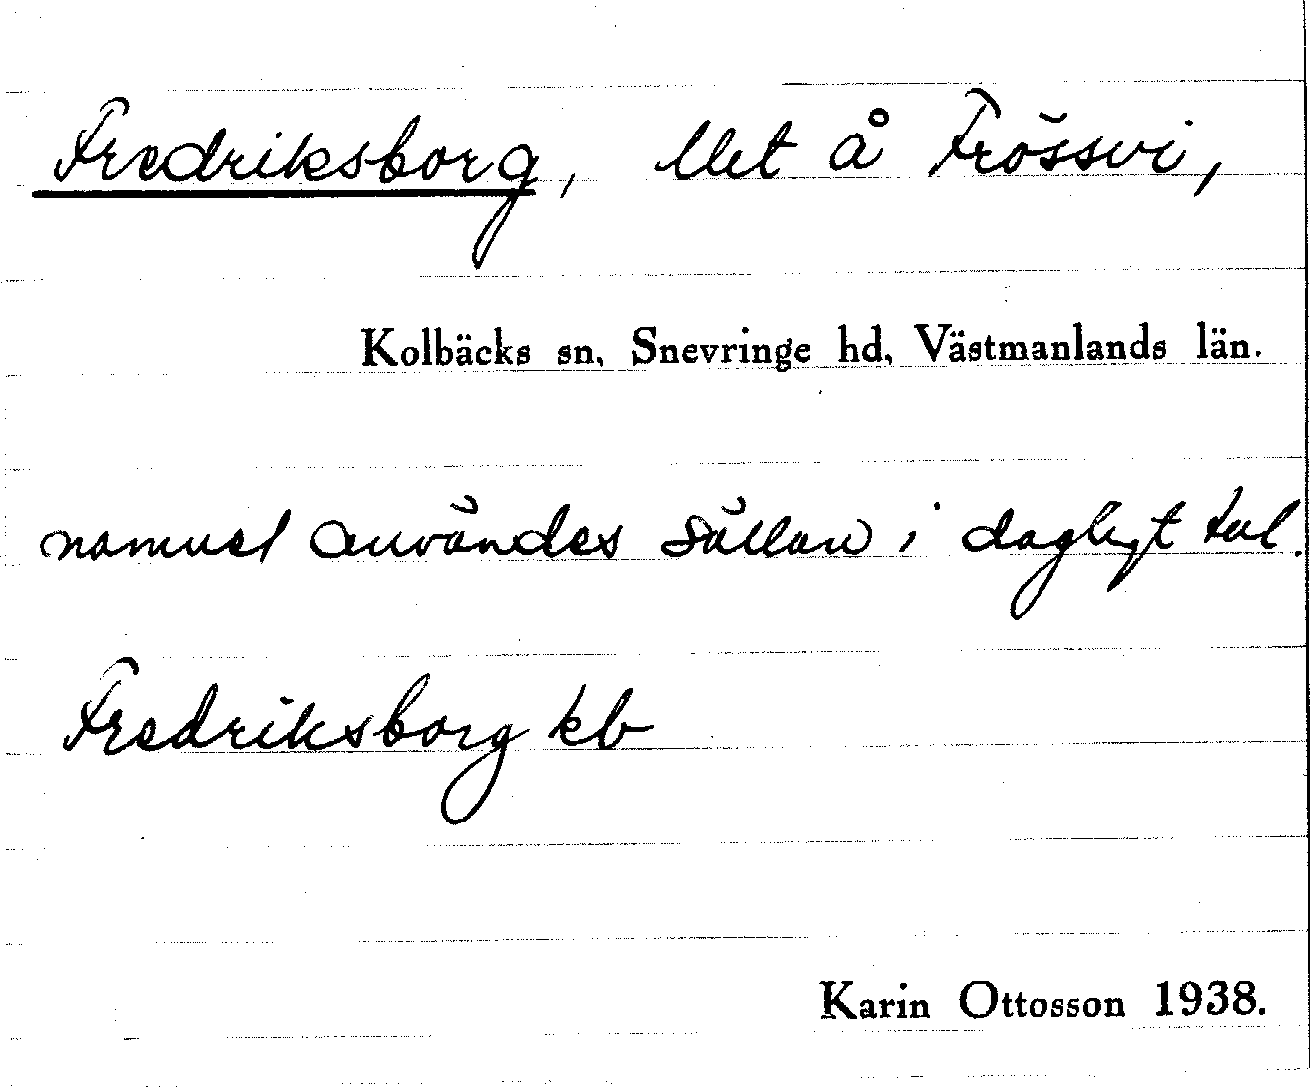 Fredriksborg, lht å Frössvi,
Kolbäcks sn, Snevringe hd, Västmanlands län.
namnet användes sällan i dagligt tal.
Fredriksborg kb
Karin Ottosson 1938.